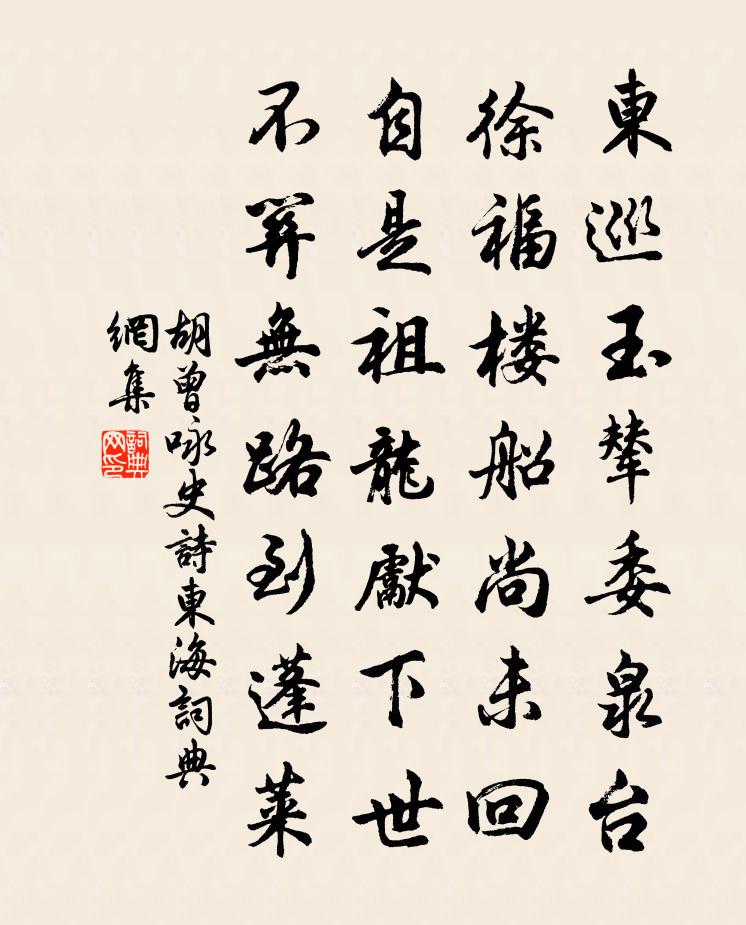 東巡玉輦委泉台
徐福楼船尚未回
自是祖龍獻下世
不筭無路到蓬莱
胡曾咏史詩東海詞典
網集
詞典网印